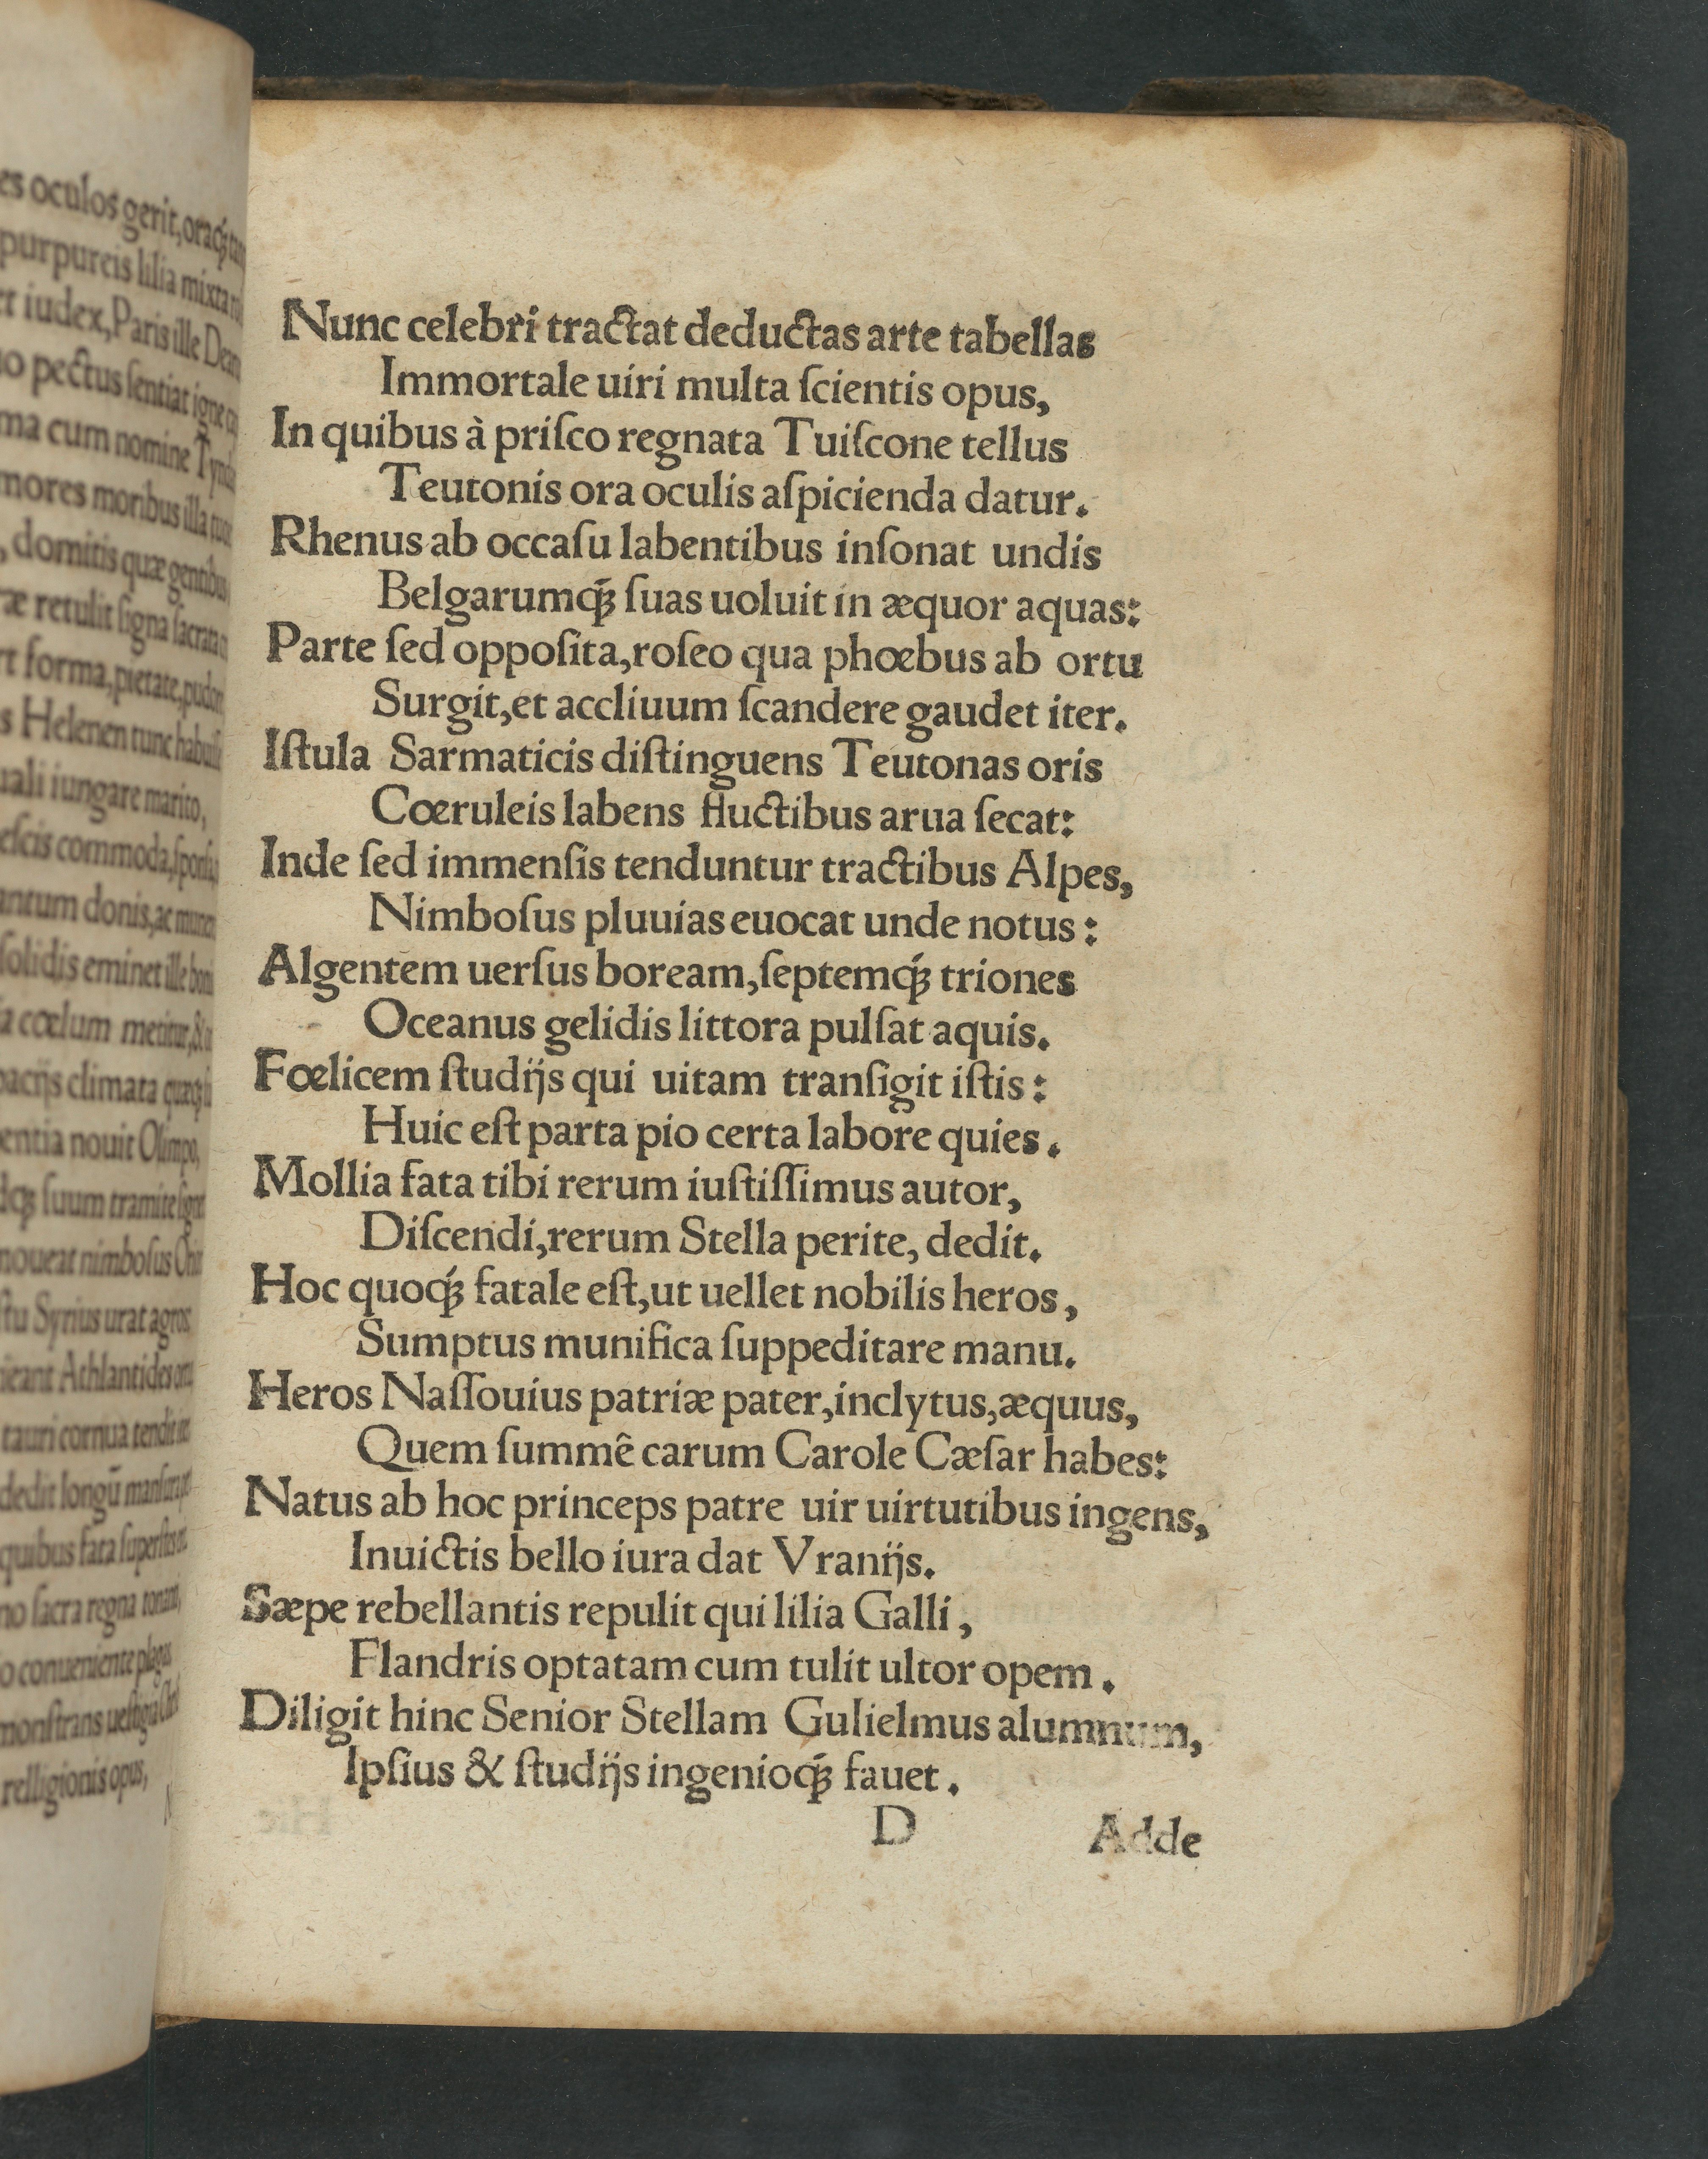 es oculos gerit, oraq́ꝫ
purpureis lilia mixta
iudex, Paris ille Dea
pectus ſentiat igne
ma cum nomine
mores moribus illa
domitis quæ gentibus
retulit ſigna ſacrata
forma, pietate, pudor
s Helenen tunc
iungare marito,
commoda,
antum donis, ac
ſolidis eminet ille
cœlum metitur, &
climata
entia nouit Olimpo,
ſuum tramite
moueat nimboſus
Syrius urat agros
Athlantides
tauri cornua tendit
dedit longū
quibus fata ſuperſtes
ſacra regna tonant,
conueniente plagas
monſtrans ueſtigia
relligionis opus,
Nunc celebri tractat deductas arte tabellas
Immortale uiri multa ſcientis opus,
In quibus à priſco regnata Tuiſcone tellus
Teutonis ora oculis aſpicienda datur.
Rhenus ab occaſu labentibus inſonat undis
Belgarumq́ꝫ ſuas uoluit in æquor aquas:
Parte ſed oppoſita, roſeo qua phœbus ab ortu
Surgit, et accliuum ſcandere gaudet iter.
Iſtula Sarmaticis diſtinguens Teutonas oris
Cœruleis labens fluctibus arua ſecat:
Inde ſed immenſis tenduntur tractibus Alpes,
Nimboſus pluuias euocat unde notus:
Algentem uerſus boream, ſeptemq́ꝫ triones
Oceanus gelidis littora pulſat aquis.
Fœlicem ſtudijs qui uitam tranſigit iſtis:
Huic eſt parta pio certa labore quies.
Mollia fata tibi rerum iuſtiſſimus autor,
Diſcendi, rerum Stella perite, dedit.
Hoc quoq́ꝫ fatale eſt, ut uellet nobilis heros,
Sumptus munifica ſuppeditare manu.
Heros Naſſouius patriæ pater, inclytus, æquus,
Quem ſummê carum Carole Cæſar habes:
Natus ab hoc princeps patre uir uirtutibus ingens,
Inuictis bello iura dat Vranijs.
Sæpe rebellantis repulit qui lilia Galli,
Flandris optatam cum tulit ultor opem.
Diligit hinc Senior Stellam Gulielmus alumnum,
Ipſius & ſtudijs ingenioq́ꝫ fauet.
D Adde